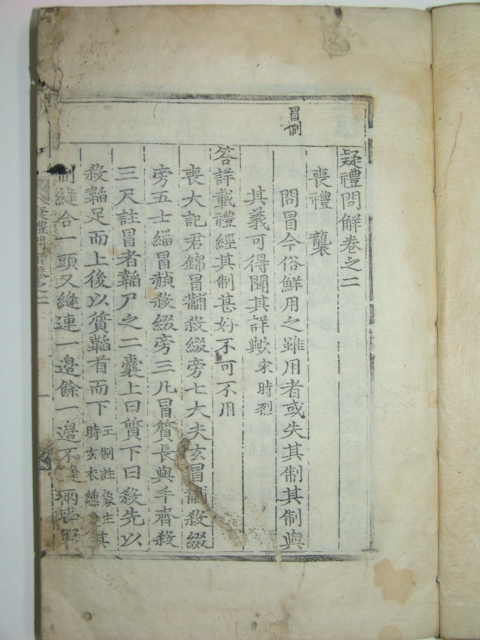 冒制
疑禮問解卷之二
喪禮 襲
問冒今俗鮮用之雖用者或失其制其制與
其義可得聞其詳歟 宋時烈
答詳載禮經其制甚好不可不用
喪大記君錦冒黼殺綴旁七大夫玄冒黼殺綴
旁五士緇冒赬殺綴旁三凡冒質長與手齊殺
三尺註冒者韜尸之二囊上曰質下曰殺先以
殺韜足而上後以質韜首而下 王制註象生 時玄衣纁 其
制縫合一頭又縫連一邊餘一邊不縫兩囊皆
疑禮問解卷之二 一